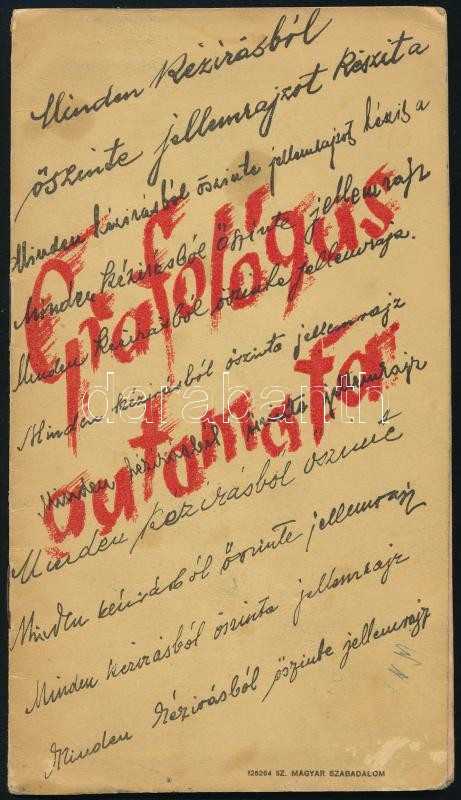 Minden kézírásból
őszinte jellemrajzot készít a
Minden kézirásból őszinte jellemrajzot készit a
Grafológus
Minden kézirásból őszinte jellemrajz
Minden kézirásból őszinte jellemrajz.
Minden kézirásból őszinte jellemrajz
automata
Minden kézirásból őszinte jellemrajz
Minden kézirásból őszinte
Minden kézirásból őszinte jellemrajz
Minden kézirásból őszinte jellemrajz
Minden kézirásból őszinte jellemrajz
darabanth
126264 SZ. MAGYAR SZABADALOM